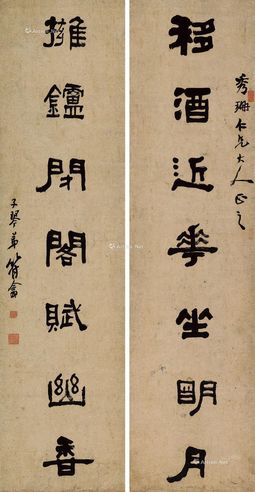 秀珊仁兄大人正之
移酒近華坐明月
擁鑪閉閣賦幽香
子琴弟符翕